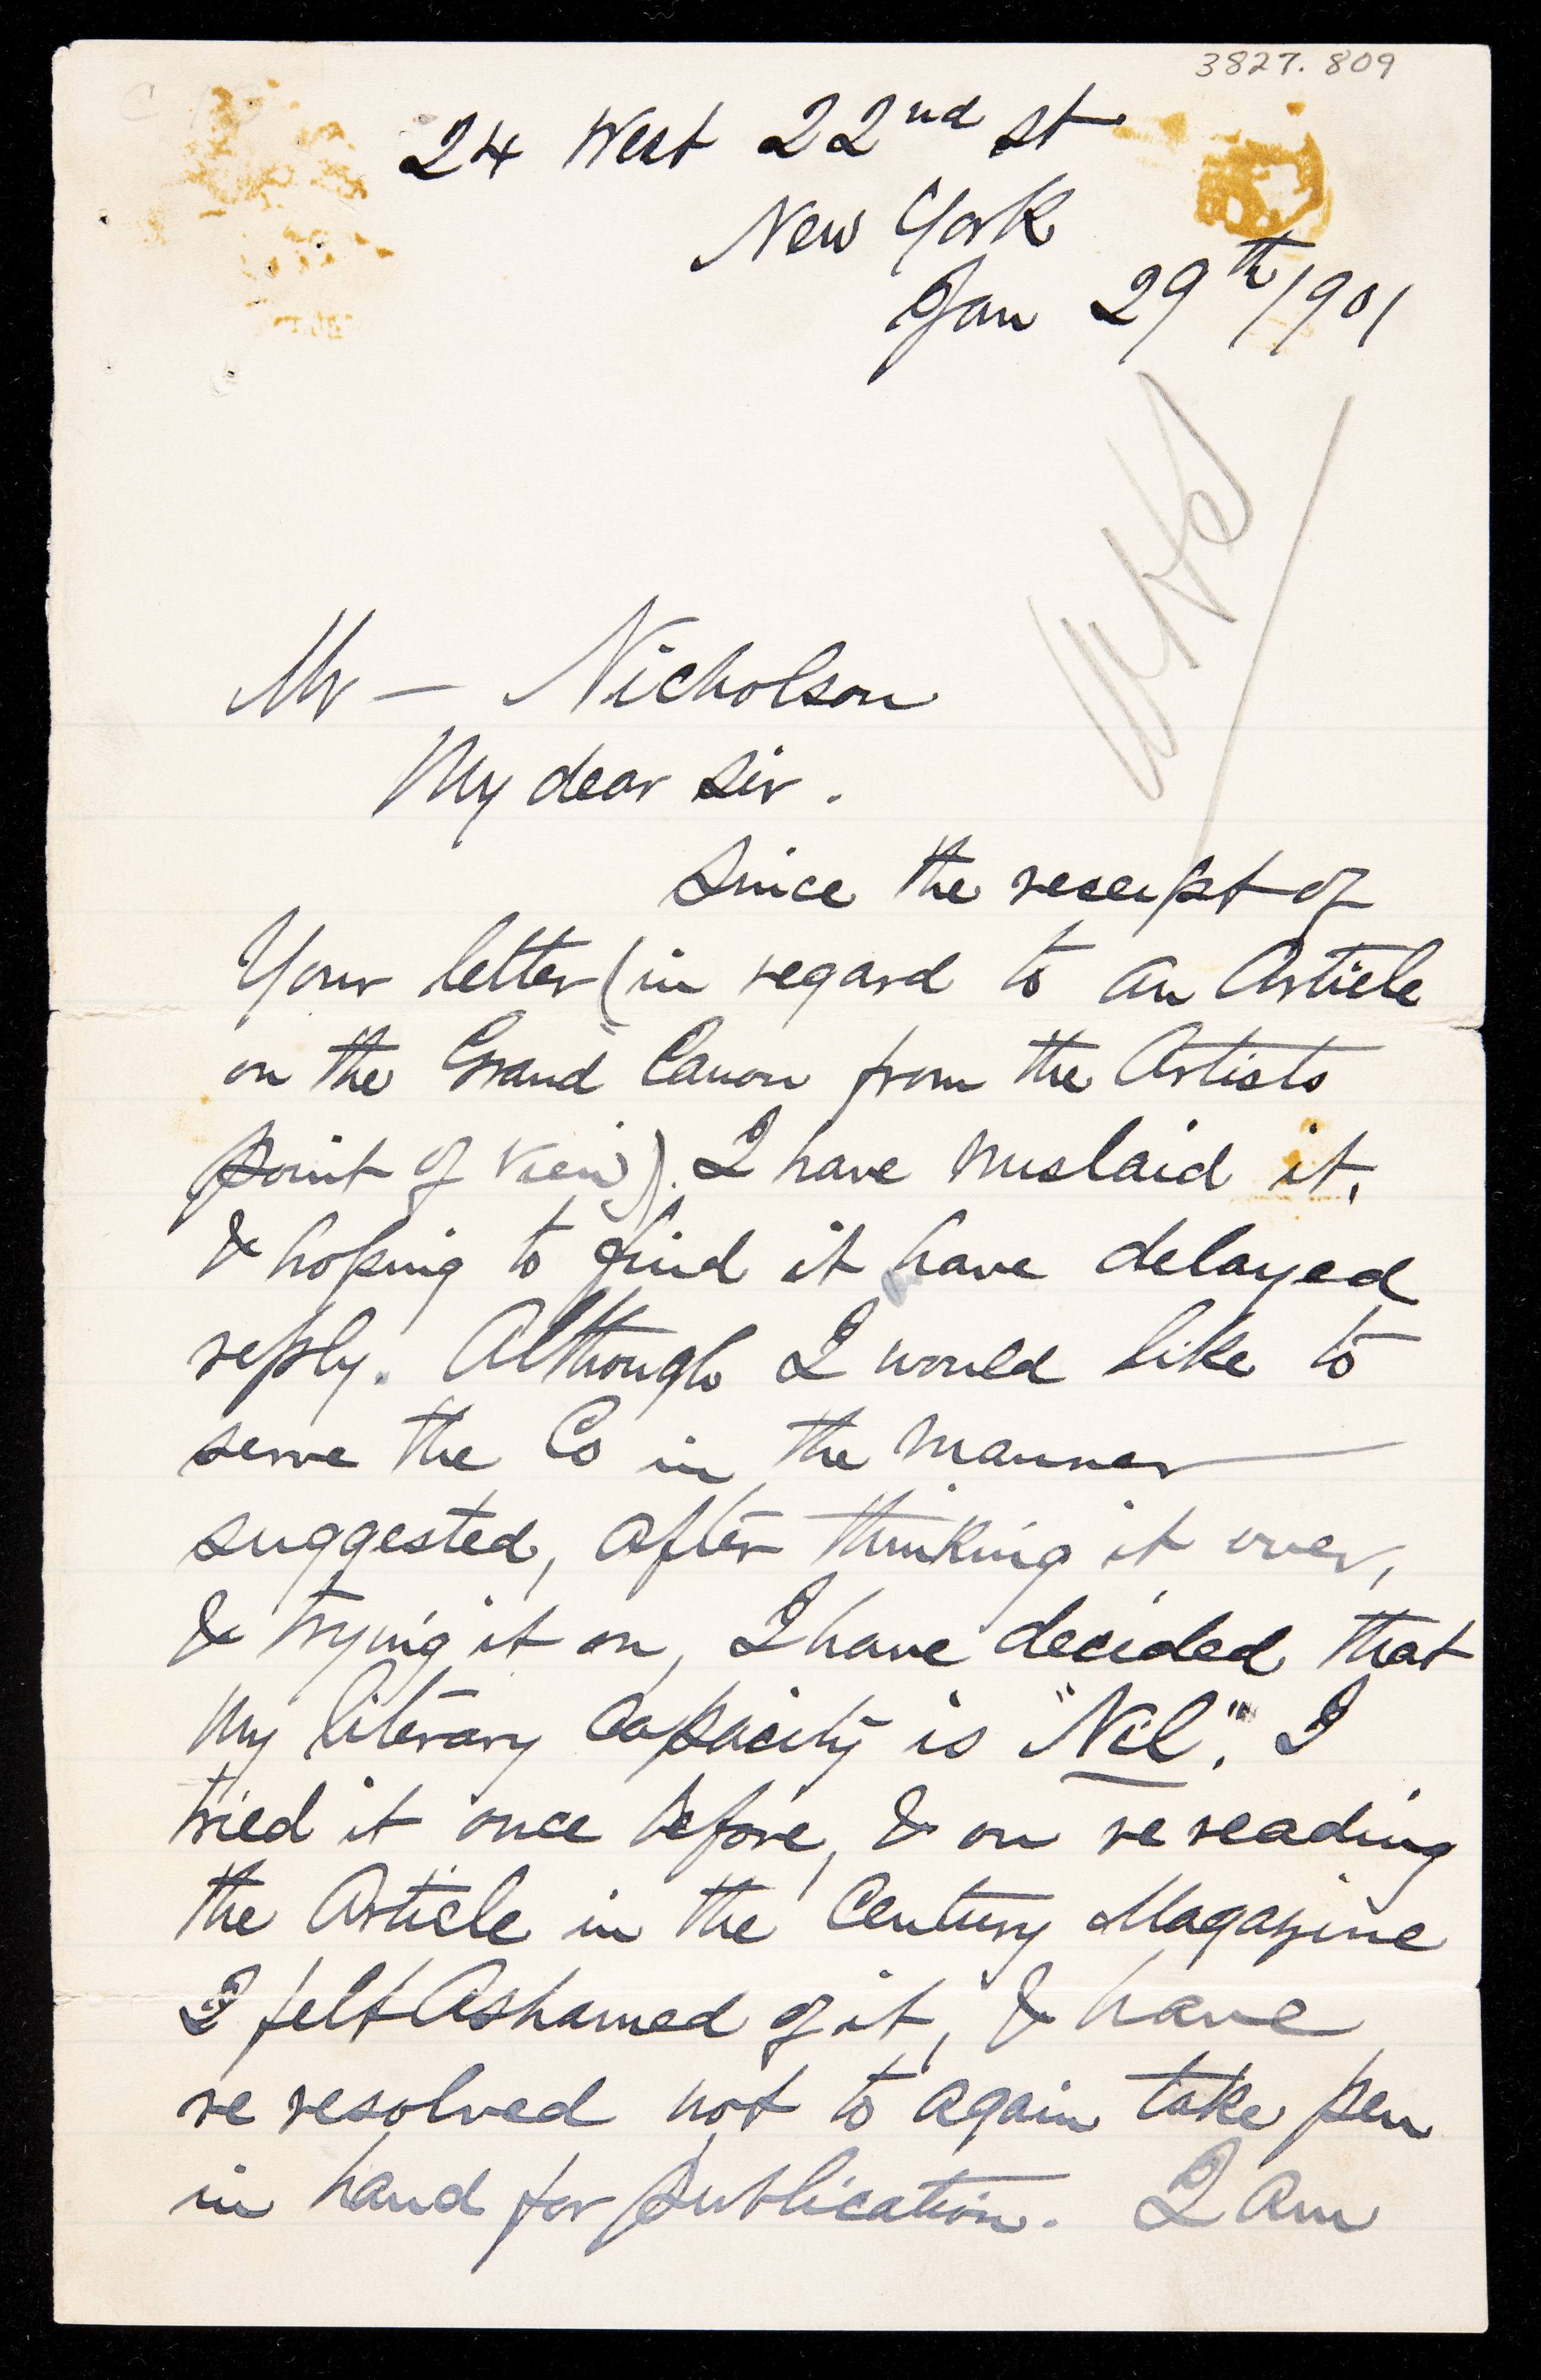 3827. 809
24 West 22nd st
New York
Jan 29th/1901
Mr — Nicholson
My dear Sir.
Since the receipt of
Your letter (in regard to an Article
on the Grand Canon from the Artists
point of view). I have mislaid it,
& hoping to find it have delayed
reply. Although I would like to
serve the Co in the manner
suggested, after thinking it over,
& trying it on, I have decided that
my literary capacity is "Nil". I
tried it once before, & on re reading
the Article in the Century Magazine
I felt Ashamed of it, & have
re resolved not to again take pen
in hand for publication. I am